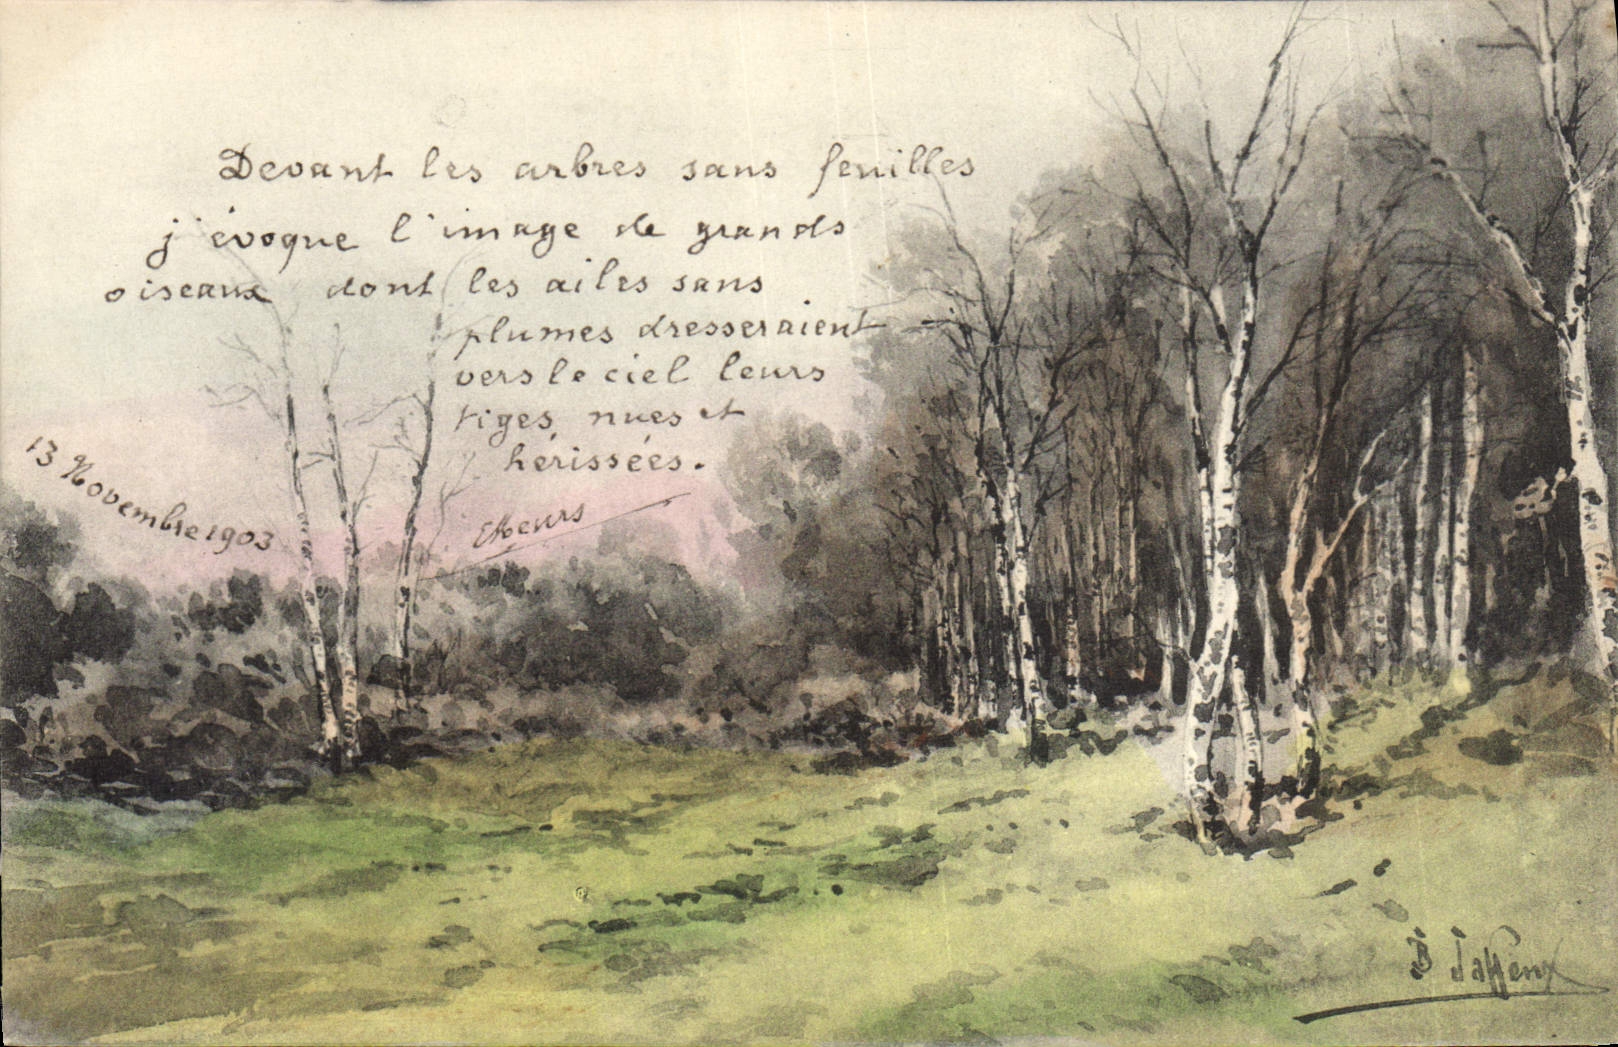 Devant les arbres sans feuilles
j'évoque l'image de grands
oiseaux dont les ailes sans
plumes dresseraient
vers le ciel leurs
tiges nues et
hérissées.
13 Novembre 1903